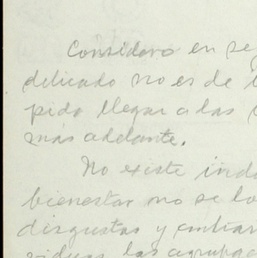 Considero en se
delicado no es de l
pido llegar a las
más adelante.
No existe ind
bienestar no se lo
disgustos y
las agrupac